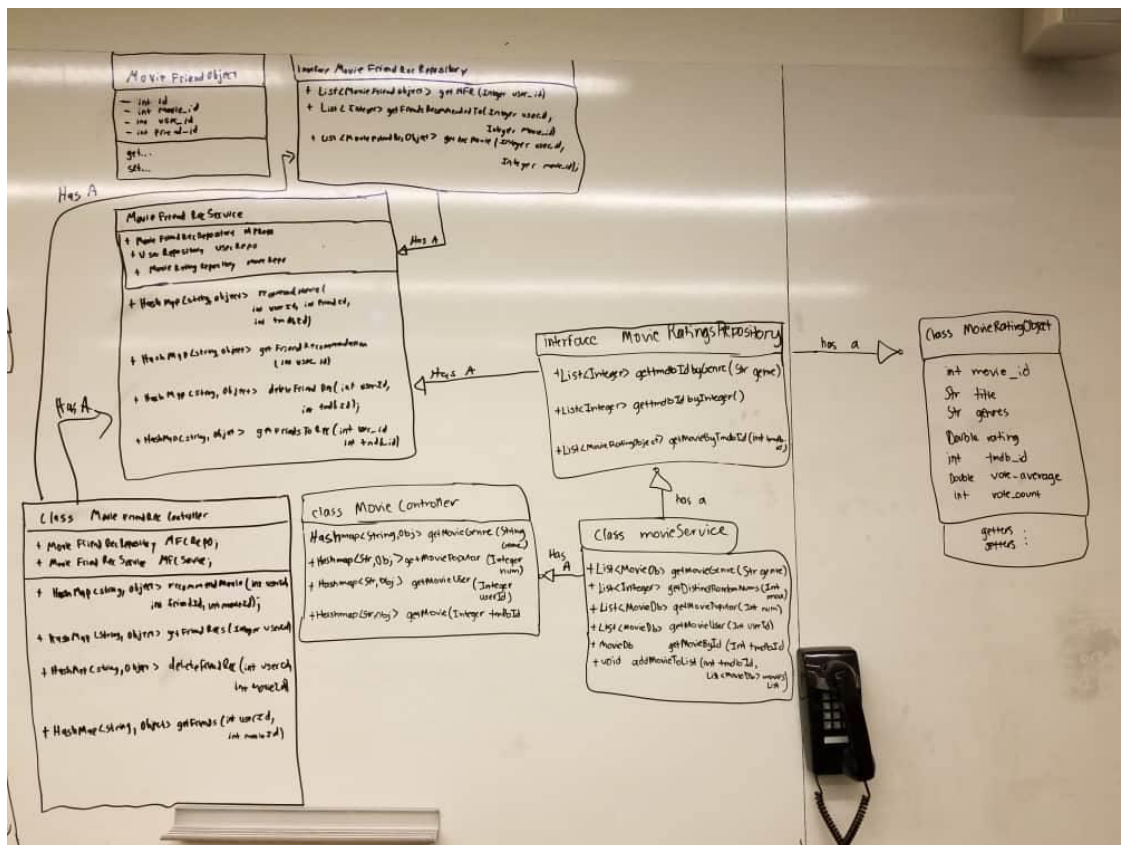 Movie Friend Object
- int id
- int movie_id
- int user_id
- int friend_id
get...
set...
Movie Friend Rec Repository
+ List<MovieFriendObject> get MFR (Integer user_id)
+ List<Integer> getFriendsRecommendedTo(Integer userid,
Integer movie_id)
+ List<MovieFriendRecObject> getRecMovie (Integer userid,
Integer movie_id);
Has A
Movie Friend Rec Service
+ Movie Friend Rec Repository MFRepo
+ User Repository userRepo
+ Movie Rating Repository movieRepo
+ HashMap<string, object> recommendMovie(
int userId, int friendId,
int tmdbId)
+ HashMap<string, object> getFriendRecommendation
(int user_id)
+ HashMap<string, Object> deleteFriend Rec(int userId,
int tmdbId);
+ HashMap<string, object> getFriendsToRec (int user_id
int tmdb_id)
Has A
Has A
Has A
interface Movie RatingsRepository
+List<Integer> gettmdbIdbyGenre(Str genre)
+List<Integer> gettmdbIdbyInteger()
+List<MovieRatingObject> getMovieByTmdbId(int tmdb_
id)
has a
class MovieRatingObject
int movie_id
Str title
Str genres
Double rating
int tmdb_id
Double vote-average
int vote_count
getters :
setters :
has a
Class Movie FriendRec Controller
+ Movie Friend Rec Repository MFCRepo;
+ Movie Friend Rec Service MFCService;
+ HashMap<string, object> recommendMovie (int userId
int friendId, int movieId);
+ HashMap<string, Object> getFriendRecs (Integer userId)
+ HashMap<string, Object> deleteFriendRec (int userId
int movieId)
+ HashMap<string, Object> getFriends (int userId,
int movieId)
class Movie Controller
Hashmap<String,Obj> getMovieGenre (String
+Hashmap<Str,Obj> getMoviePopular (Integer
num)
+Hashmap<Str,Obj> getMovieUser (Integer
userId)
+Hashmap<Str,Obj> getMovie(Integer tmdbId
Has
A
Class movieService
+List<MovieDb> getMovieGenre(Str genre)
+List<Integer> getDistinctRandomNums(Int
max)
+List<MovieDb> getMoviePopular(Int num)
+List<MovieDb> getMovieUser (Int userId)
+MovieDb getMovieById (Int tmdbId)
+void addMovieToList (int tmdbId,
List<MovieDb> movies
List)